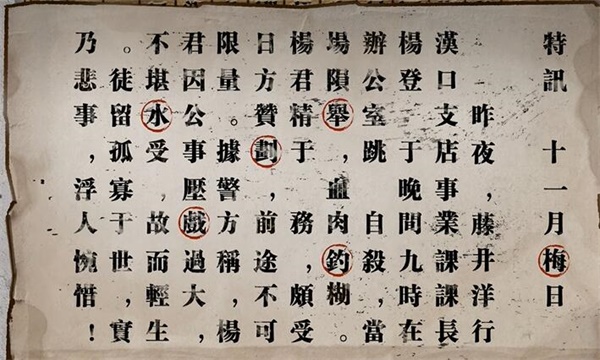 特訊 十一月梅日
昨夜，藤井洋行
漢口支店事業課課長
楊登 于晚間九時在
辦公室跳 自殺，當
場隕舉，血肉釣糊。
楊君精于 務，頗受
日方贊劃，前途不可
限量。據警方稱，楊
君因公事壓戲過大，
不堪水受，故而輕生
。徒留孤寡于世，實
乃悲事，浮人惋惜！